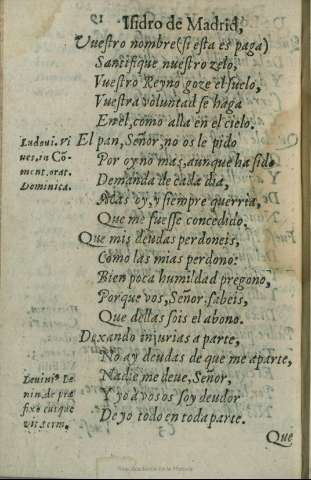 Isidro de Madrid,
Vuestro nombre (si esta es paga)
Santifique nuestro zelo,
Vuestro Reyno goze el suelo,
Vuestra voluntad se haga
Enel, como alla en el cielo.
Ludoui. Vi
ues, in Cō-
ment. orat.
Dominica.
El pan, Señor, no os le pido
Por oy no mas, aunque ha sido
Demanda de cada dia,
Mas oy, y siempre querria,
Que me fuesse concedido.
Que mis deudas perdoneis,
Como las mias perdono:
Bien poca humildad pregono,
Porque vos, Señor, sabeis,
Que dellas sois el abono.
Dexando injurias a parte,
No ay deudas de que me aparte,
Nadie me deue, Señor,
Y yo a vos os soy deudor
De yo todo en toda parte.
nin. de præ
Que
Real Academia de la Historia